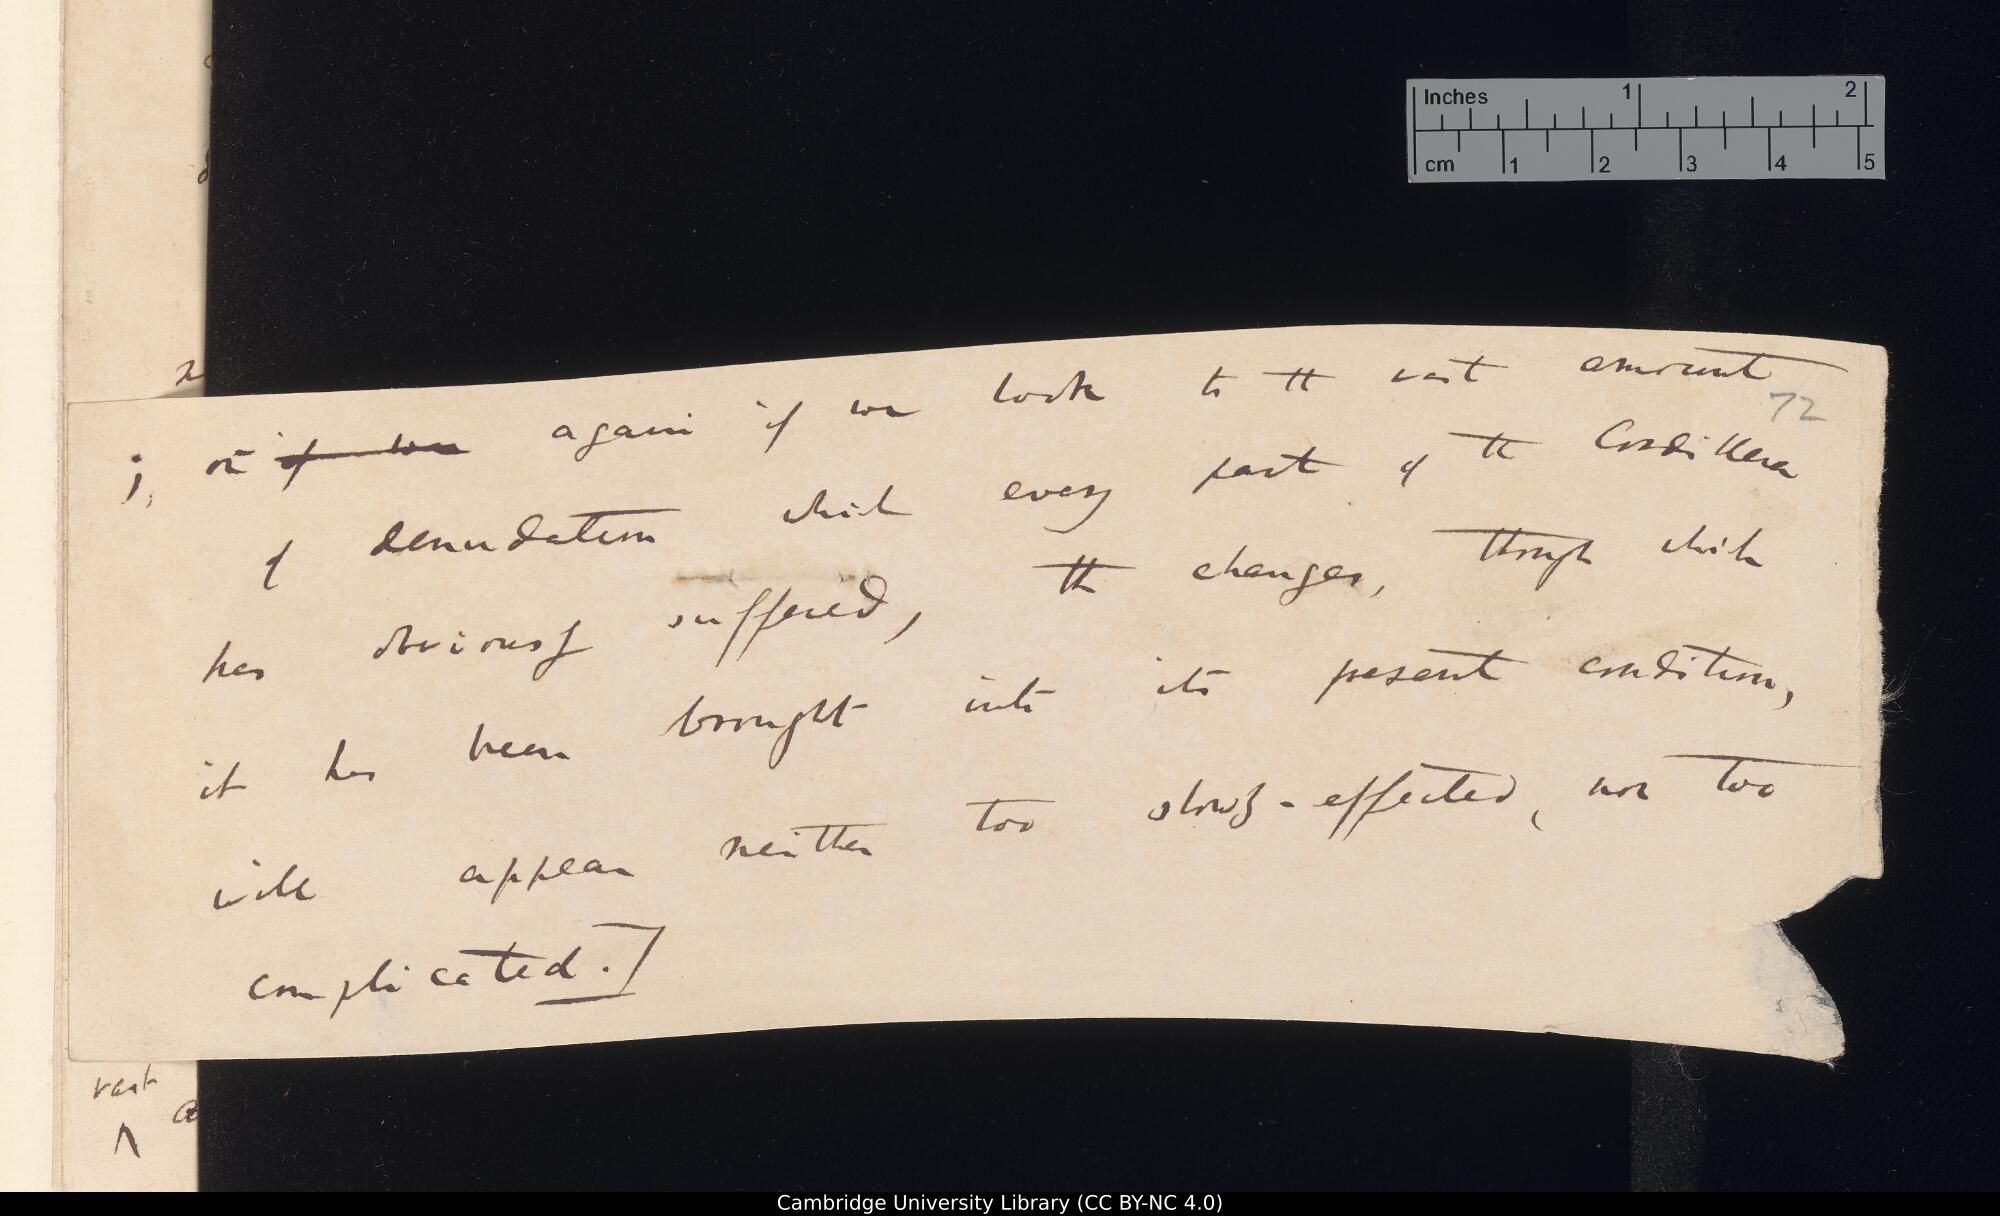 Inches 1 2
cm 1 2 3 4 5
72
; or if we again if we look to the vast amount
of denudation which every part of the Cordillera
has obviously suffered, the changes, through which
it has been brought into its present condition,
will appear neither too slowly-effected, nor too
complicated.]
vast
Cambridge University Library (CC BY-NC 4.0)